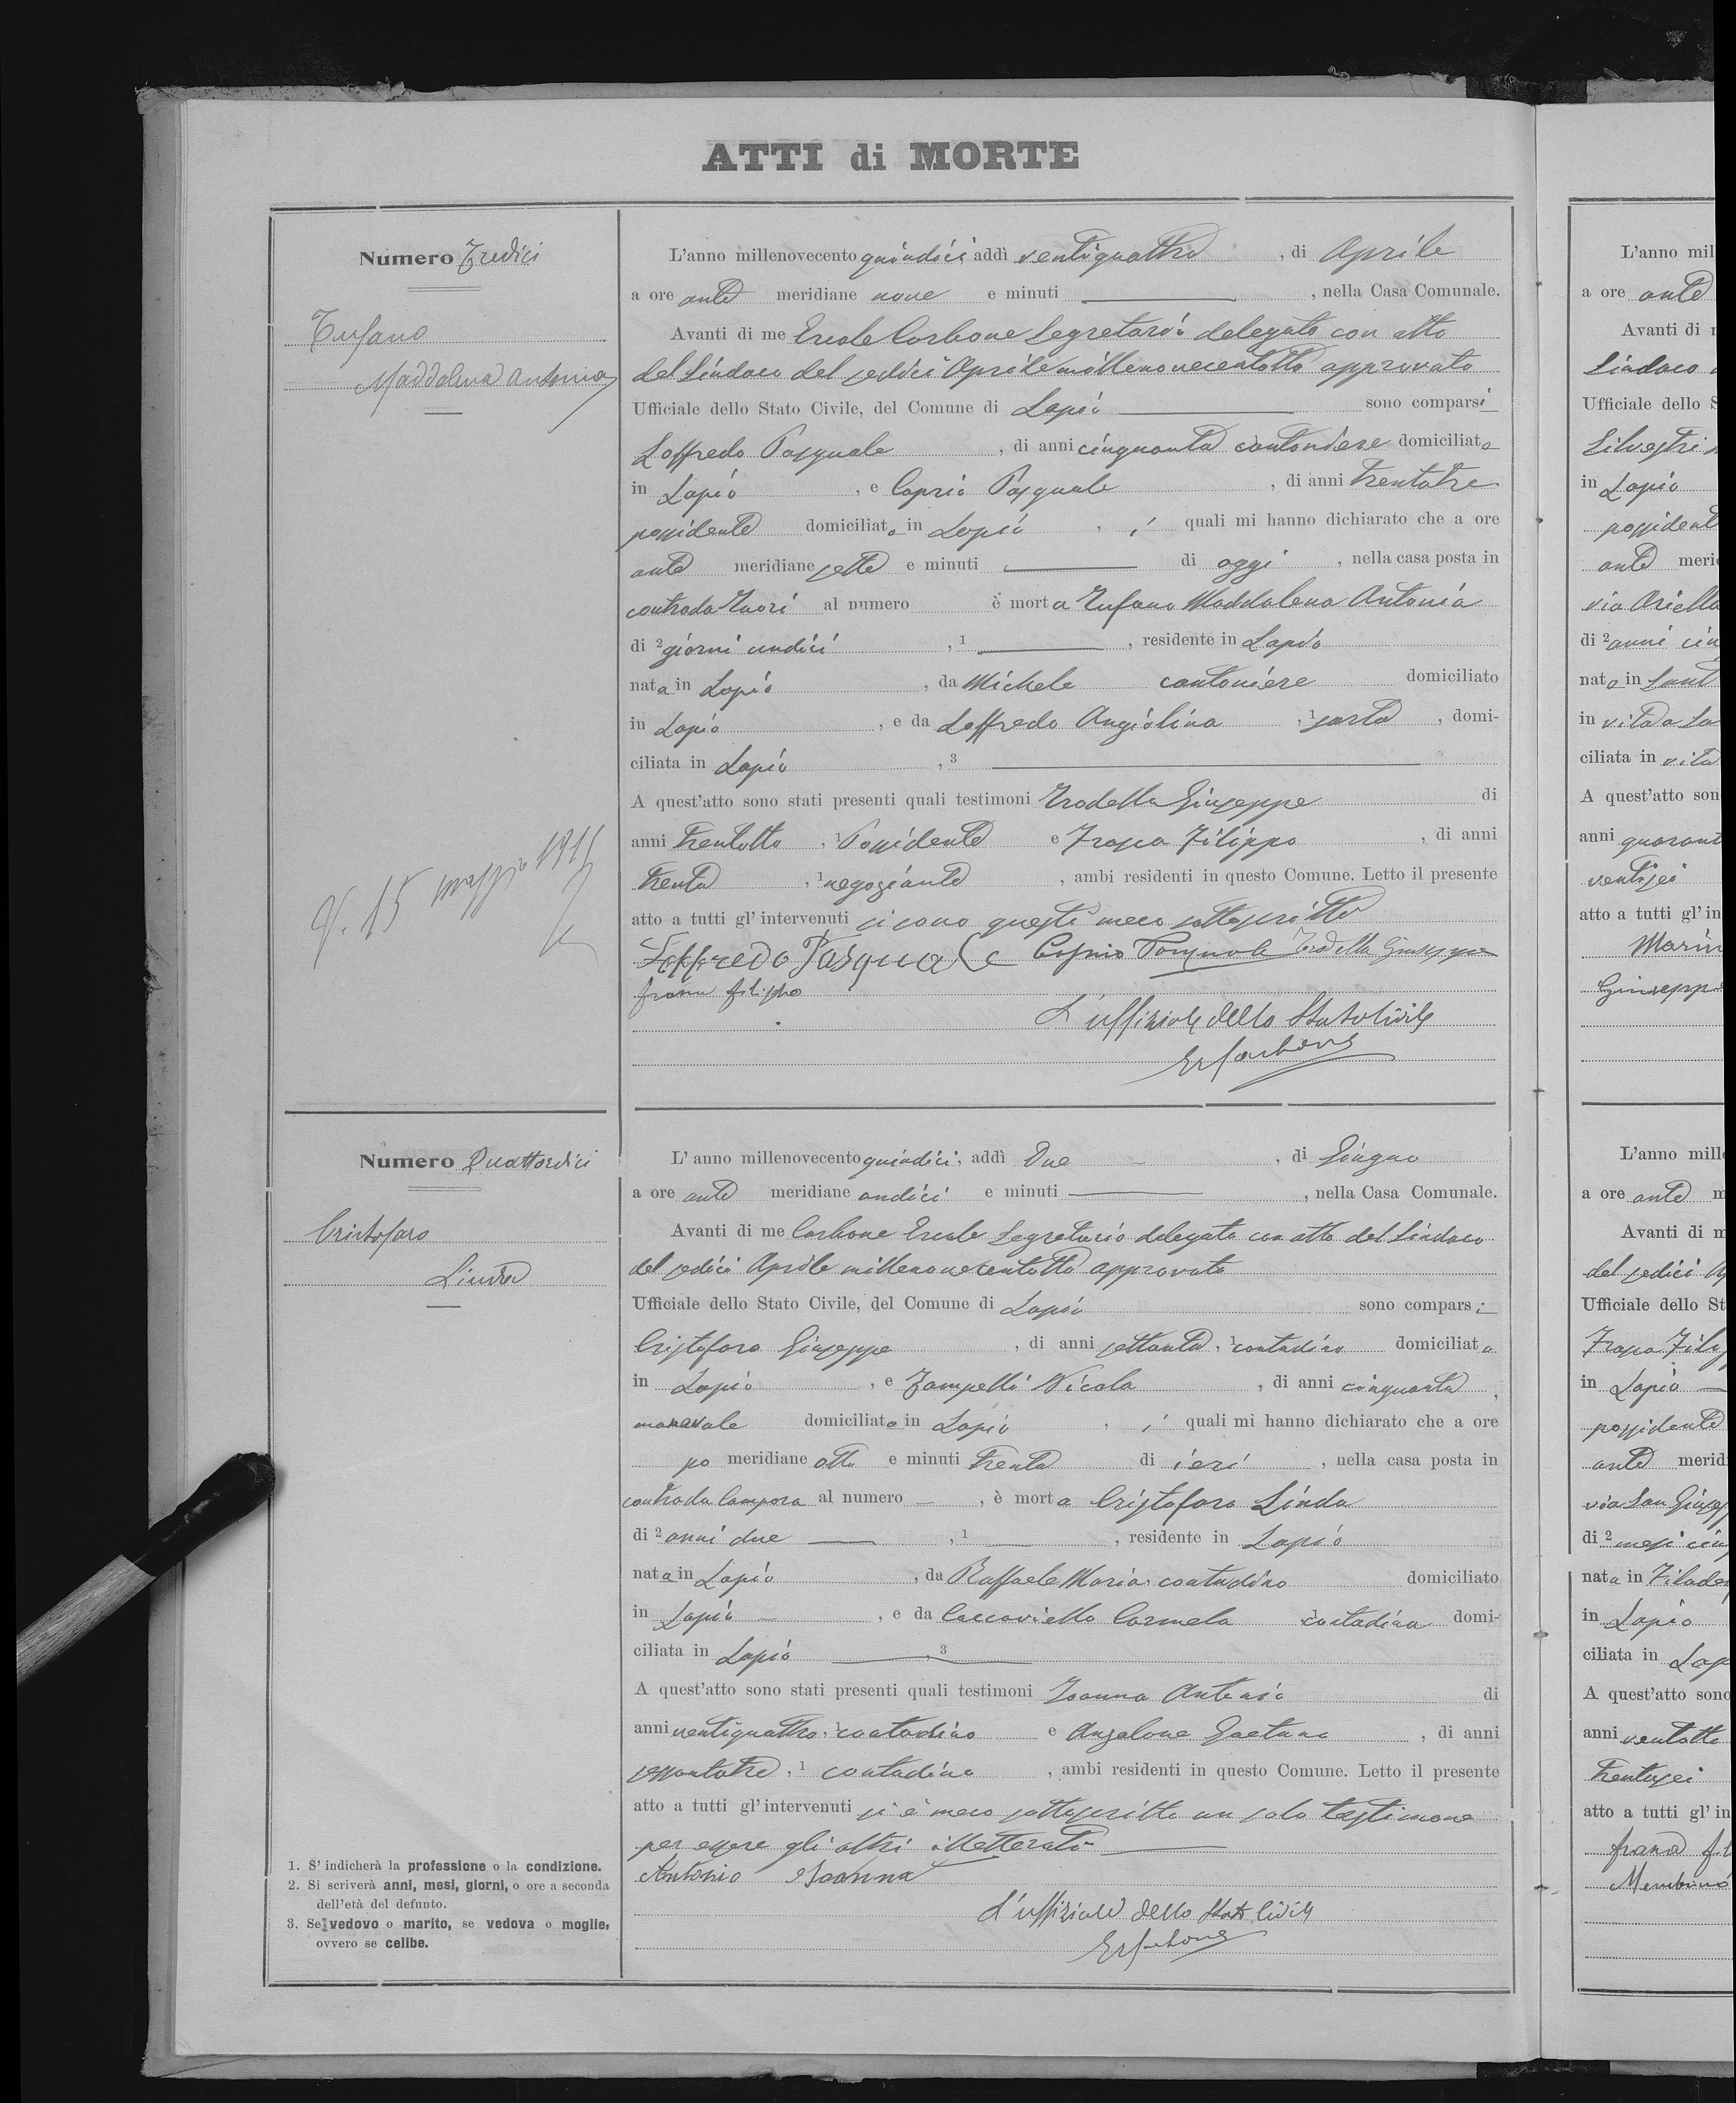 ATTI di MORTE
Numero Tredici
Tufano
Maddalena Antonia
V. 15 maggio 1915
L'anno millenovecento quindici addì ventiquattro , di Aprile
a ore anti meridiane nove e minuti , nella Casa Comunale.
Avanti di me Ercole Carbone Segretario delegato con atto
del Sindaco del sedici Aprile millenovecentotto approvato
Ufficiale dello Stato Civile, del Comune di Lapio sono comparsi
Loffredo Pasquale , di anni cinquanta cantoniere domiciliato
in Lapio , e Caprio Pasquale , di anni trentatre
possidente domiciliato in Lapio , i quali mi hanno dichiarato che a ore
anti meridiane sette e minuti di oggi , nella casa posta in
contrada al numero è morta Tufano Maddalena Antonia
di 2 giorni undici , 1 , residente in Lapio
nata in Lapio , da Michele cantoniere domiciliato
in Lapio , e da Loffredo Angiolina , 1 sarta , domi-
ciliata in Lapio , 3
A quest'atto sono stati presenti quali testimoni Trodella Giuseppe di
anni trentotto , 1 Possidente e Frasca Filippo , di anni
trenta , 1 negoziante , ambi residenti in questo Comune. Letto il presente
atto a tutti gl'intervenuti si sono questi meco sottoscritti
Loffredo Pasquale Caprio Pasquale Trodella Giuseppe
Filippo
L'uffiziale dello Stato Civile
ErCarbone
Numero Quattordici
Cristofaro
Linda
L'anno millenovecento quindici, addì Due , di Giugno
a ore anti meridiane undici e minuti , nella Casa Comunale.
Avanti di me Carbone Ercole Segretario delegato con atto del Sindaco
del sedici Aprile millenovecentotto approvato
Ufficiale dello Stato Civile, del Comune di Lapio sono comparsi
Cristofaro Giuseppe , di anni settanta , 1 contadino domiciliato
in Lapio , e Zampelli Nicola , di anni cinquanta ,
manovale domiciliato in Lapio , i quali mi hanno dichiarato che a ore
po meridiane otto e minuti trenta di ieri , nella casa posta in
contrada Campora al numero , è morta Cristofaro Linda
di 2 anni due , 1 , residente in Lapio
nata in Lapio , da Raffaele Maria contadino domiciliato
in Lapio , e da Caccaviello Carmela contadina domi-
ciliata in Lapio , 3
A quest'atto sono stati presenti quali testimoni Ioanna Antonio di
anni ventiquattro, 1 contadino e Anzalone Gaetano , di anni
sessantatre , 1 contadino , ambi residenti in questo Comune. Letto il presente
atto a tutti gl'intervenuti si è meco sottoscritto un solo testimone
per essere gli altri illetterati
Antonio Ioanna
L'uffiziale dello Stato Civile
ErCarbone
1. S'indicherà la professione o la condizione.
2. Si scriverà anni, mesi, giorni, o ore a seconda
dell'età del defunto.
3. Se vedovo o marito, se vedova o moglie,
ovvero se celibe.
L'anno mil
a ore anti
Avanti di
Sindaco
Ufficiale dello
Silvestri
in Lapio
possident
anti meri
via Ariella
di 2 anni cin
nato in Sant
in vita a
ciliata in vita
A quest'atto son
anni quarant
ventisei
atto a tutti gl'in
Marin
Giuseppe
L'anno mill
a ore anti m
Avanti di m
del sedici
Ufficiale dello St
Frasca Fili
in Lapio
possidente
anti merid
via San Giusep
di 2 mesi cin
nata in Filade
in Lapio
ciliata in Lap
A quest'atto sono
anni ventotto
trentasei
atto a tutti gl'in